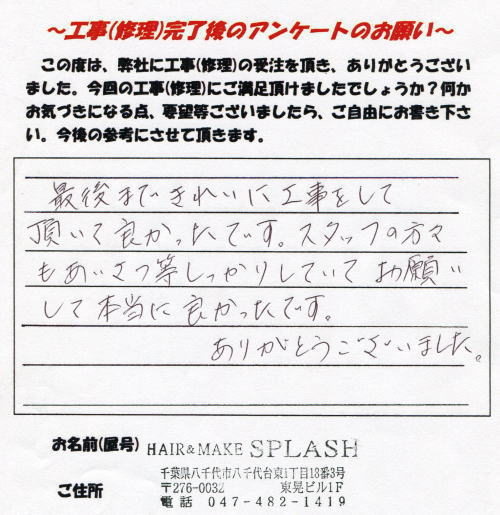 ～工事(修理)完了後のアンケートのお願い～
この度は、弊社に工事(修理)の受注を頂き、ありがとうござい
ました。今回の工事(修理)にご満足頂けましたでしょうか？何か
お気づきになる点、要望等ございましたら、ご自由にお書き下さ
い。今後の参考にさせて頂きます。
最後まできれいに工事をして
頂いて良かったです。スタッフの方々
もあいさつ等しっかりしていてお願い
して本当に良かったです。
ありがとうございました。
お名前(屋号) HAIR&MAKE SPLASH
千葉県八千代市八千代台東1丁目18番3号
ご住所 〒276-0032 東晃ビル1F
電話 047-482-1419